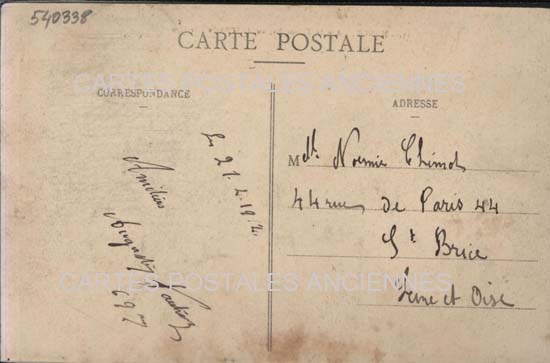 540338
CARTE POSTALE
CARTES POSTALES ANCIENNES
CORRESPONDANCE
ADRESSE
Le 21.4.1912.
Amitiés
697
Mlle Noemie Chimot
44 rue de Paris 44
St Brice
Seine et Oise
CARTES POSTALES ANCIENNES